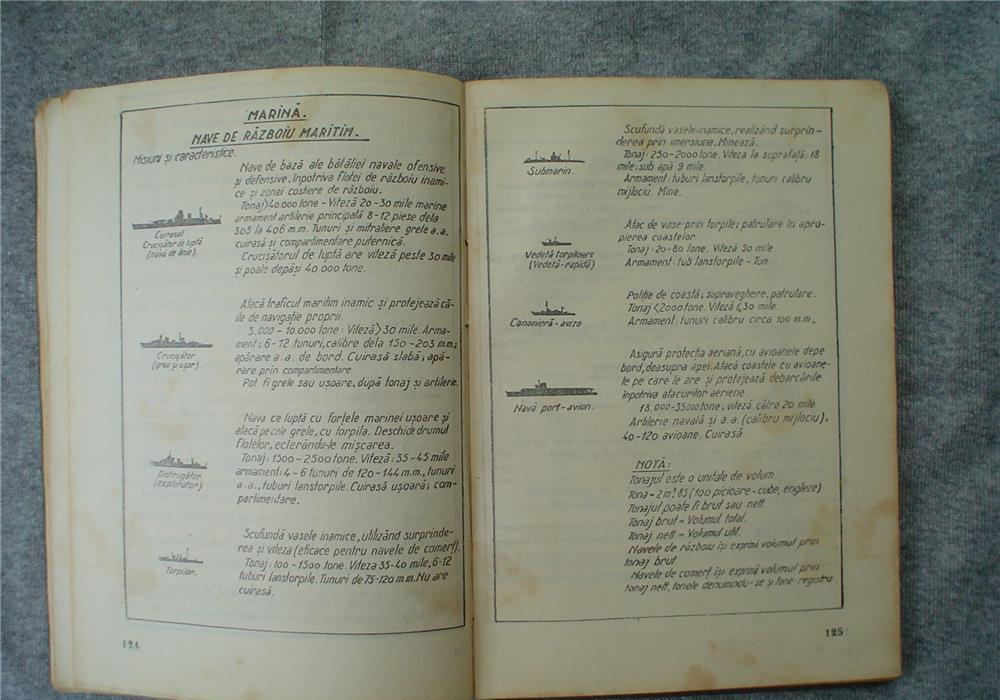 MARINĂ.
NAVE DE RĂZBOIU MARITIM.
Misiuni și caracteristice.
Nave de bază ale bătăliei navale ofensive
și defensive, împotriva flotei de războiu inami-
ce și zonei costiere de războiu.
Tonaj>40.000 tone - Viteză 20-30 mile marine
armament artilerie principală 8-12 piese dela
305 la 406 m.m. Tunuri și mitraliere grele a.a.
cuirasă și compartimentare puternică.
Crucișătorul de luptă are viteză peste 30 mile
și poate depăși 40 000 tone.
Cuirasat
Crucișător de luptă
(navă de linie).
Atacă traficul maritim inamic și protejează că-
ile de navigație proprii.
3.000 - 10.000 tone: Viteză>30 mile. Arma-
ment; 6-12 tunuri, calibre dela 150-203 m.m.;
apărare a.a. de bord. Cuirasă slabă; apă-
rare prin compartimentare
Pot fi grele sau ușoare, după tonaj și artilerie.
Crucișător
(greu și ușor).
Nava ce luptă cu forțele marinei ușoare și
atacă pe cele grele, cu torpila. Deschide drumul
flotelor, eclerându-le mișcarea.
Tonaj: 1500-2500 tone. Viteză: 35-45 mile
armament: 4-6 tunuri de 120-144 m.m., tunuri
a.a., tuburi lanstorpile. Cuirasă ușoară; com-
partimentare.
Distrugător
(explorator)
Scufundă vasele inamice, utilizând surprinde-
rea și viteza (eficace pentru navele de comerț).
Tonaj: 100-1500 tone. Viteza 35-40 mile, 6-12
tuburi lanstorpile. Tunuri de 75-120 m.m. Nu are
cuirasă.
Torpilor.
124
Scufundă vasele inamice, realizând surprin-
derea prin imersiune. Minează.
Tonaj: 250-2000 tone. Viteza la suprafață: 18
mile; sub apă 9 mile.
Armament: tuburi lanstorpile, tunuri calibru
mijlociu. Mine.
Submarin.
Atac de vase prin torpile; patrulare în apro-
pierea coastelor.
Tonaj: 20-80 tone. Viteză 50 mile
Armament: tub lanstorpile - Tun.
Vedetă torpiloare
(Vedetă-rapidă)
Poliție de coastă; supraveghere, patrulare.
Tonaj <2000 tone. Viteză <30 mile.
Armament: tunuri calibru circa 100 m.m.
Canonieră-avizo
Asigură protecția aeriană, cu avioanele depe
bord, deasupra apei. Atacă coastele cu avioane-
le pe care le are și protejează debarcările
împotriva atacurilor aeriene.
18.000-35000 tone; viteză către 20 mile
Artilerie navală și a.a. (calibru mijlociu),
40-120 avioane. Cuirasă
Navă port-avion.
NOTĂ:
Tonajul este o unitate de volum
Tona = 2m³ 83 (100 picioare-cube, engleze)
Tonajul poate fi brut sau nett.
Tonaj brut = Volumul total.
Tonaj nett = Volumul util.
Navele de războiu își exprimă volumul prin
tonaj brut.
Navele de comerț își exprimă volumul prin
tonaj nett, tonele denumindu-se și tone-registru
125